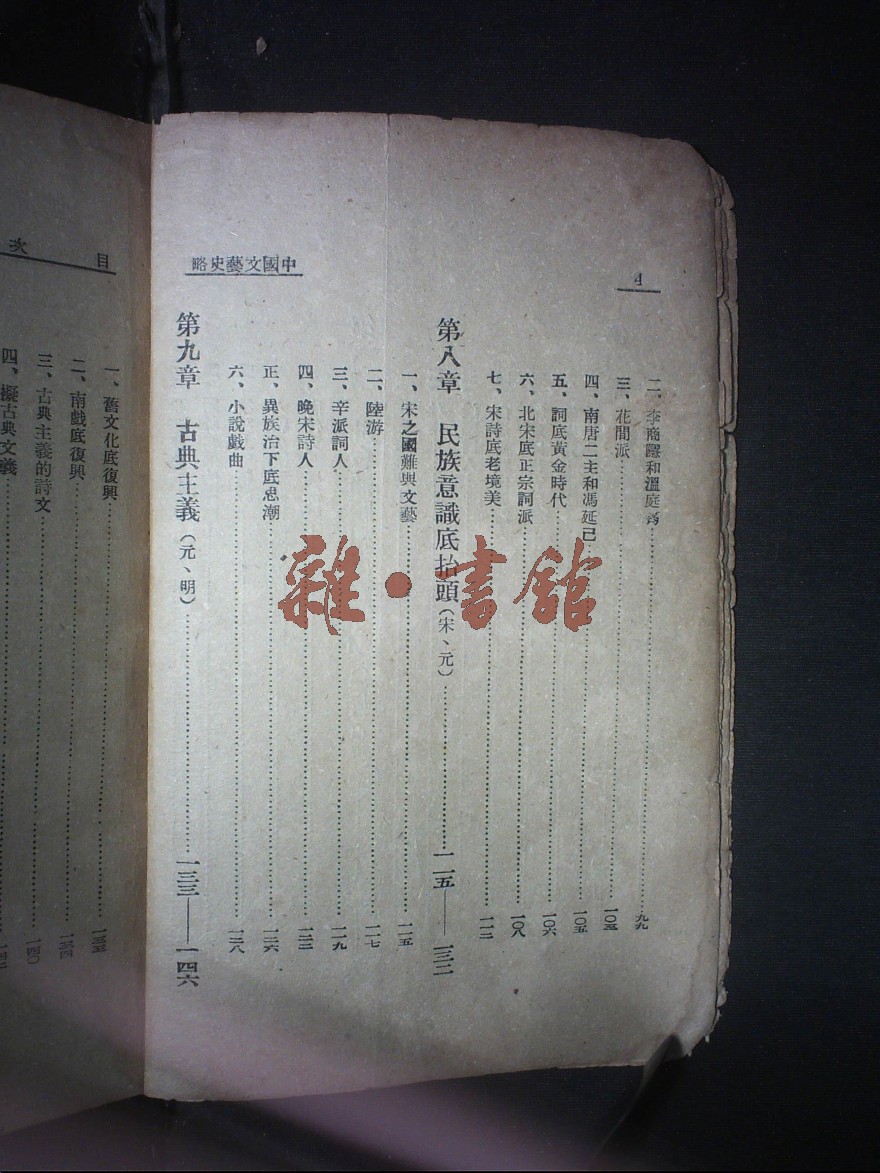 4
中國文藝史略
二、李商隱和溫庭筠……九九
三、花間派……一〇三
四、南唐二主和馮延己……一〇五
五、詞底黃金時代……一〇六
六、北宋底正宗詞派……一〇八
七、宋詩底老境美……一一二
第八章 民族意識底抬頭(宋、元)……一一五——一三二
一、宋之國難與文藝……一一五
二、陸游……一一七
三、辛派詞人……一一九
四、晚宋詩人……一二三
正、異族治下底思潮……一二六
六、小說戲曲……一二八
第九章 古典主義(元、明)……一三三——一四六
目次
一、舊文化底復興……一三三
二、南戲底復興……一三四
三、古典主義的詩文……一四〇
四、擬古典文義
雜·書館